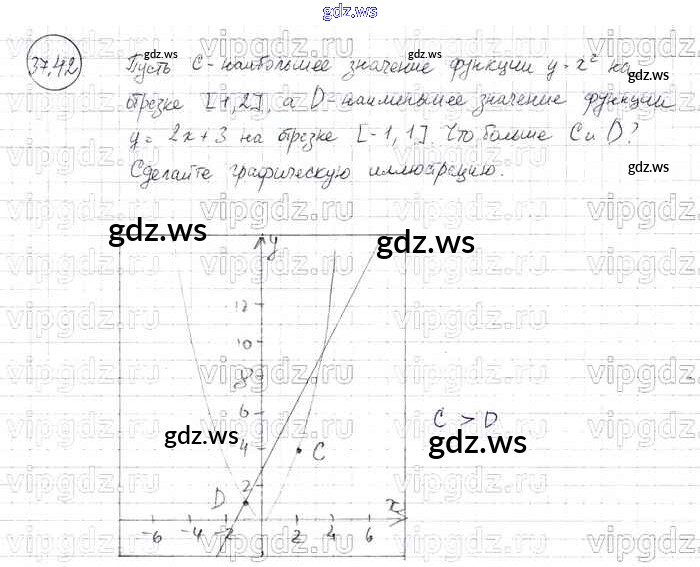 gdz.ws
37.42
Пусть C - наибольшее значение функции y = x² на
отрезке [1,2], а D - наименьшее значение функции
y = 2x + 3 на отрезке [-1, 1]. Что больше C и D?
Сделайте графическую иллюстрацию.
gdz.ws
gdz.ws
gdz.ws
gdz.ws
vipgdz.ru
gdz.ws
gdz.ws
y
12
10
8
6
4
2
C
D
x
-6 -4 -2 2 4 6
C > D
gdz.ws
gdz.ws